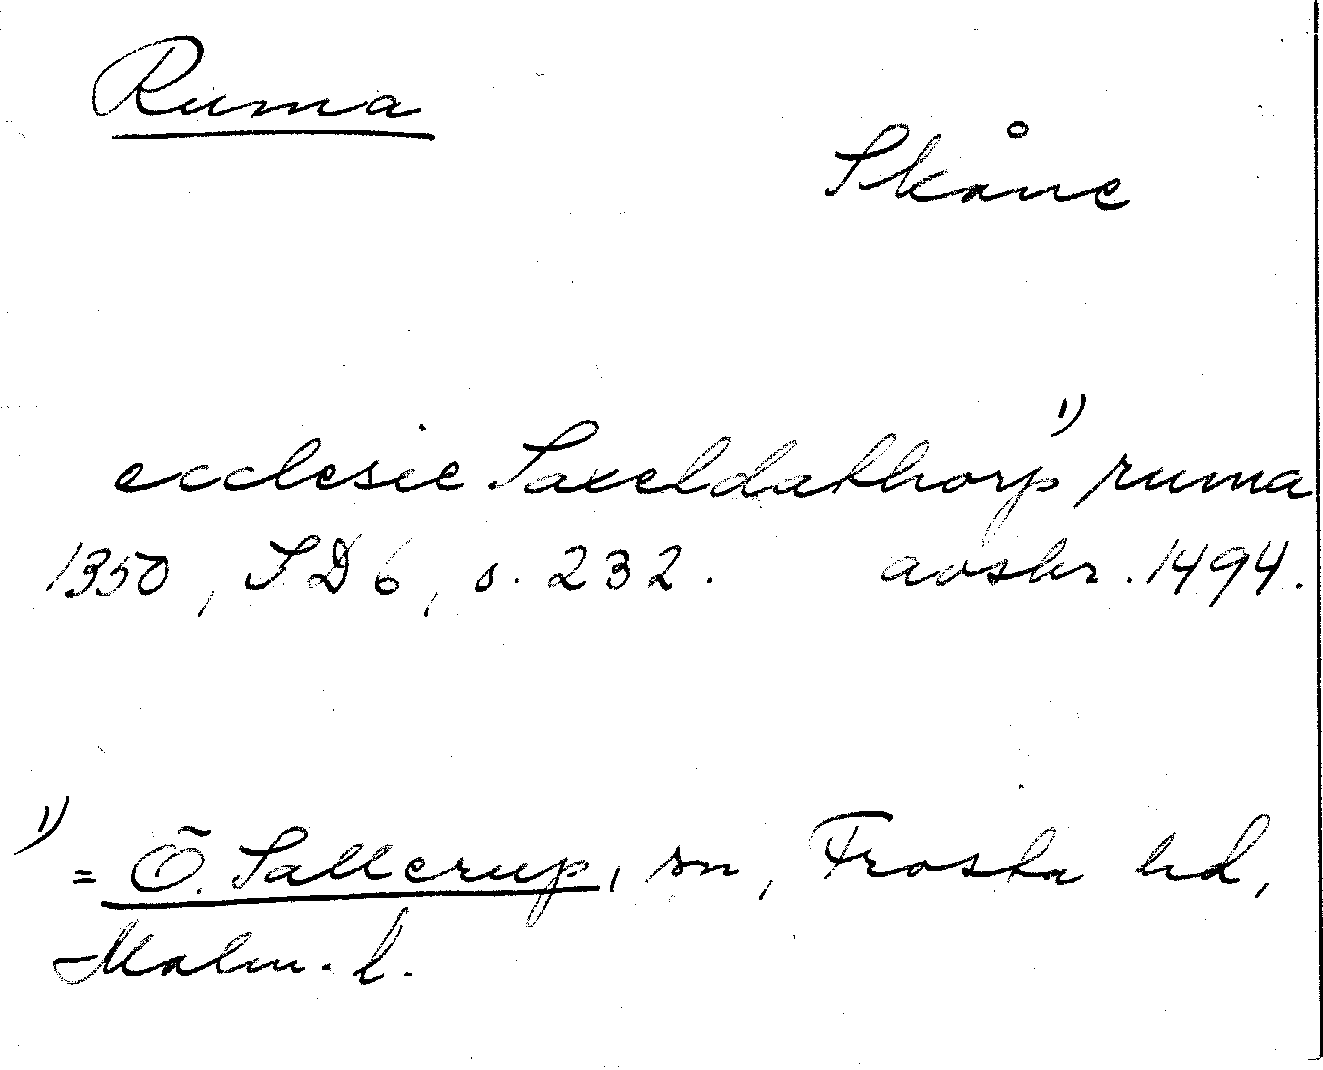 Ruma
Skåne
ecclesie Saxeldathorp 1) ruma
1350, SD 6, s. 232. avskr. 1494.
1) = Ö. Sallerup, sn, Frosta hd,
Malm. l.